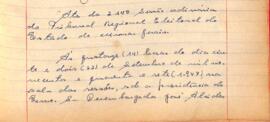 "Ata da 2.140 sessão ordinária
do Tribunal Regional Eleitoral do
Estado de Minas Gerais
Às quatorze (14) horas do dia vinte
e dois (22) de Setembro de mil no-
vecentos e quarenta e sete (1.947) na
sala das sessões, sob a presidência do
Exmo. Sr. Desembargador José Alcides